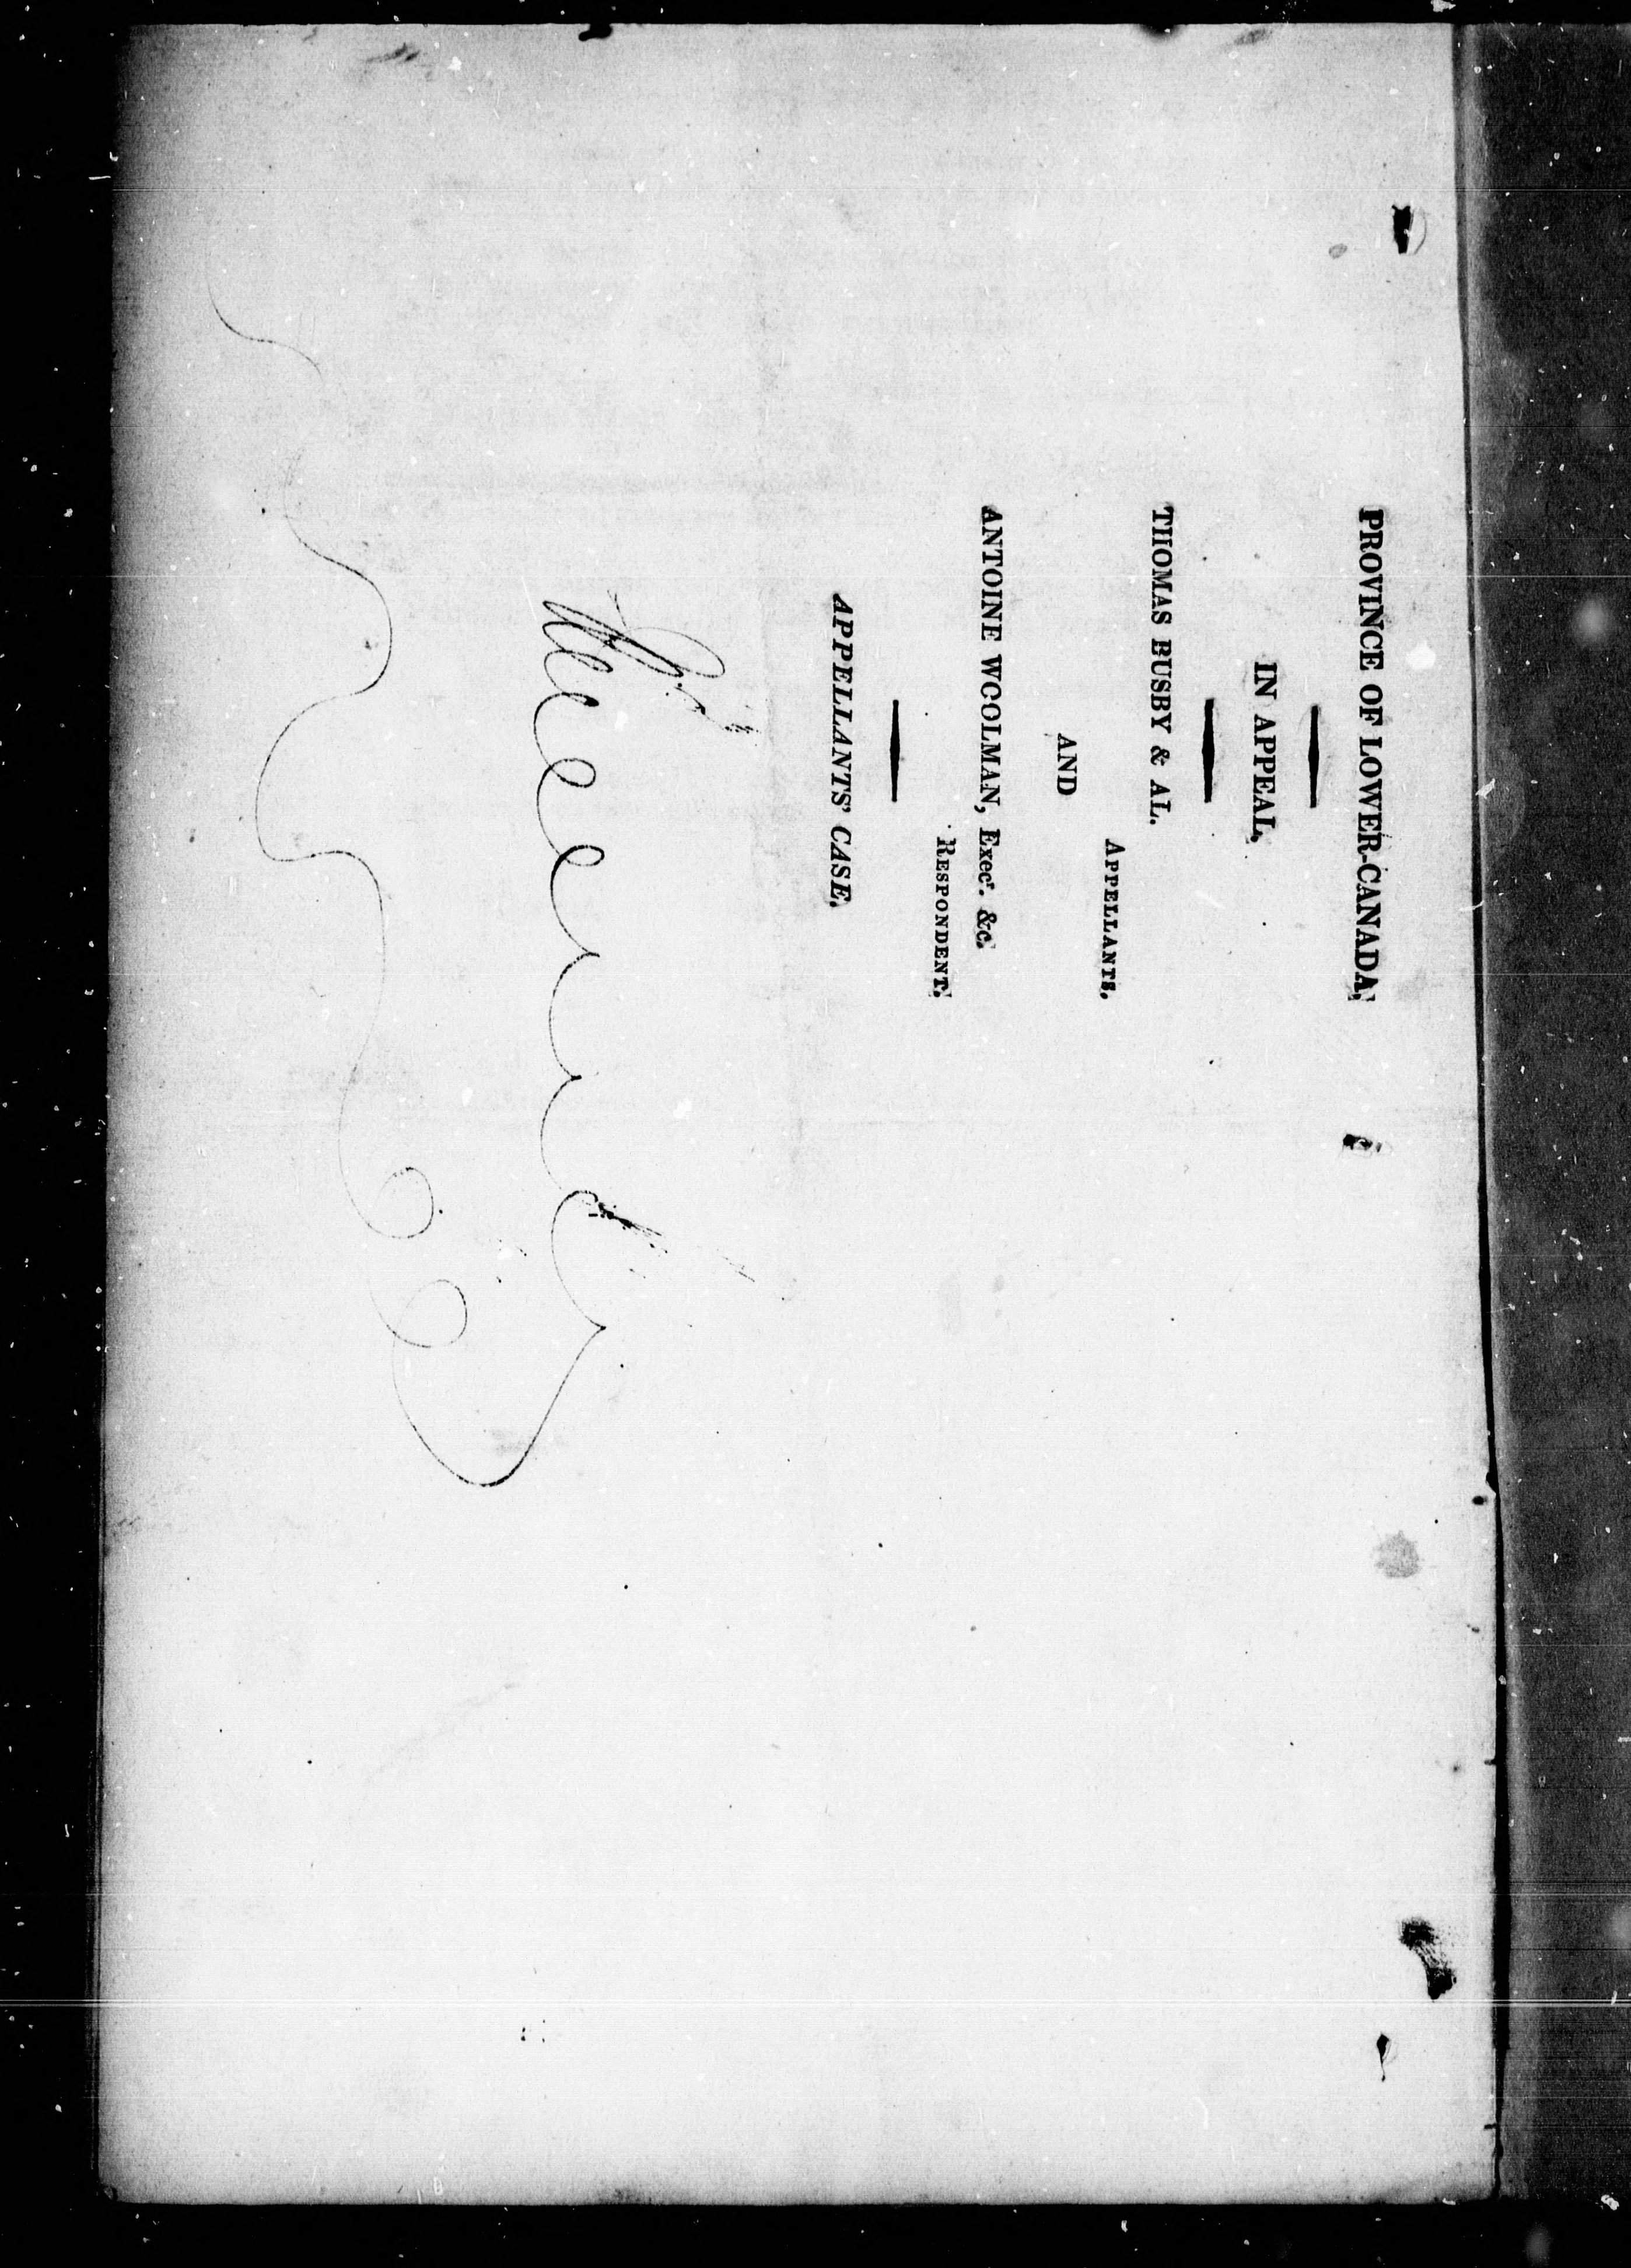 PROVINCE OF LOWER-CANADA,
IN APPEAL,
THOMAS BUSBY & AL.
APPELLANTS.
AND
ANTOINE WOOLMAN, Execr. &c.
RESPONDENT.
APPELLANTS' CASE.